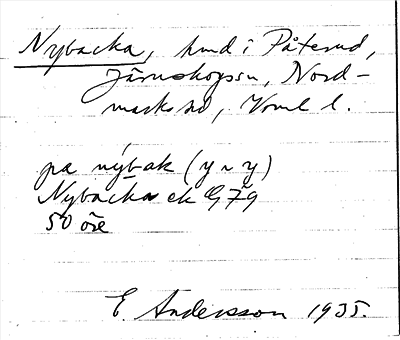 Nybacka, hmd i Påterud,
Järnskogssn, Nord-
marks hd, Vrml l.
pa nýbak (y ~ y)
Nybacka ek G79
50 öre
E. Andersson 1935.